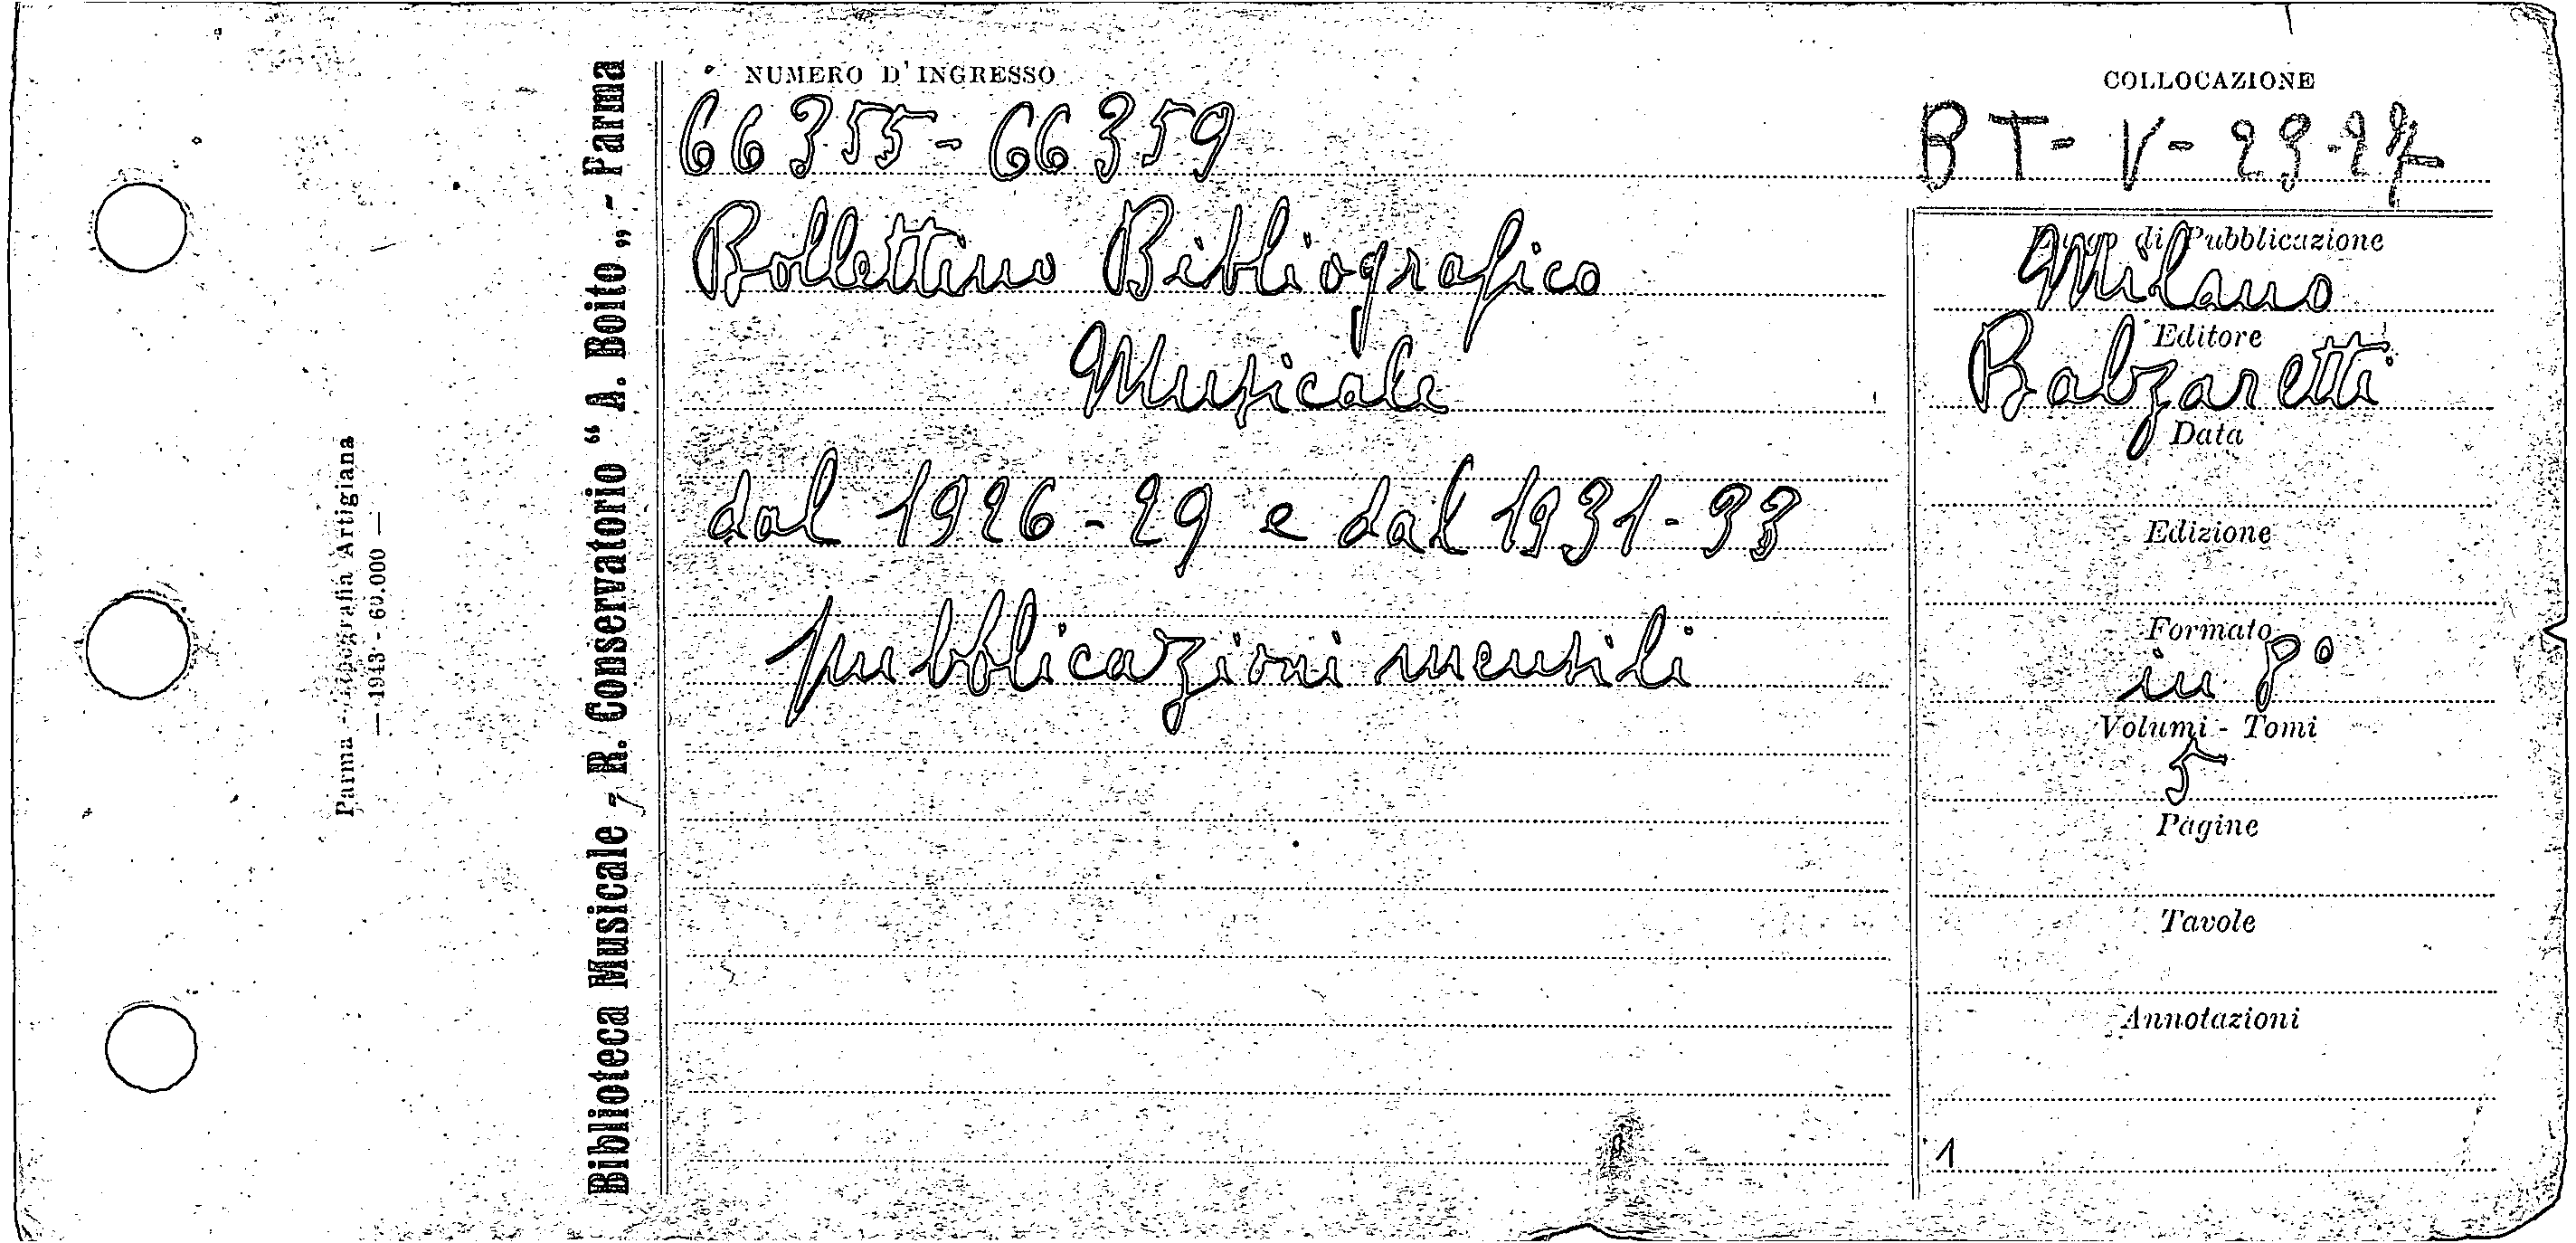 Parma - Tipografia Artigiana
— 1943 - 60.000 —
Biblioteca Musicale - R. Conservatorio “ A. Boito „ - Parma
NUMERO D'INGRESSO
66355-66359
Bollettino Bibliografico
Musicale
dal 1926-29 e dal 1931-33
pubblicazioni mensili
COLLOCAZIONE
BT-V-23-27
Luogo di Pubblicazione
Milano
Editore
Balzaretti
Data
Edizione
Formato
in 8°
Volumi - Tomi
5
Pagine
Tavole
Annotazioni
1